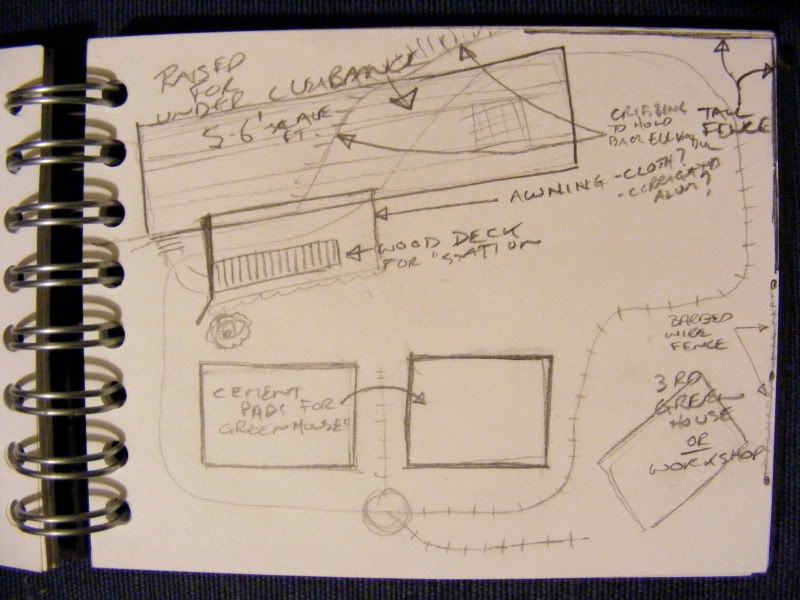 RAISED
FOR
UNDER CLEARANCE
5-6' SCALE
FT.
CRIBBING
TO HOLD
BACK ELEVATION
TALL
FENCE
AWNING -CLOTH?
-CORRUGATED
ALUM?
WOOD DECK
FOR "STATION
BARBED
WIRE
FENCE
CEMENT
PADS FOR
GREENHOUSES
3RD
GREEN
HOUSE
OR
WORKSHOP